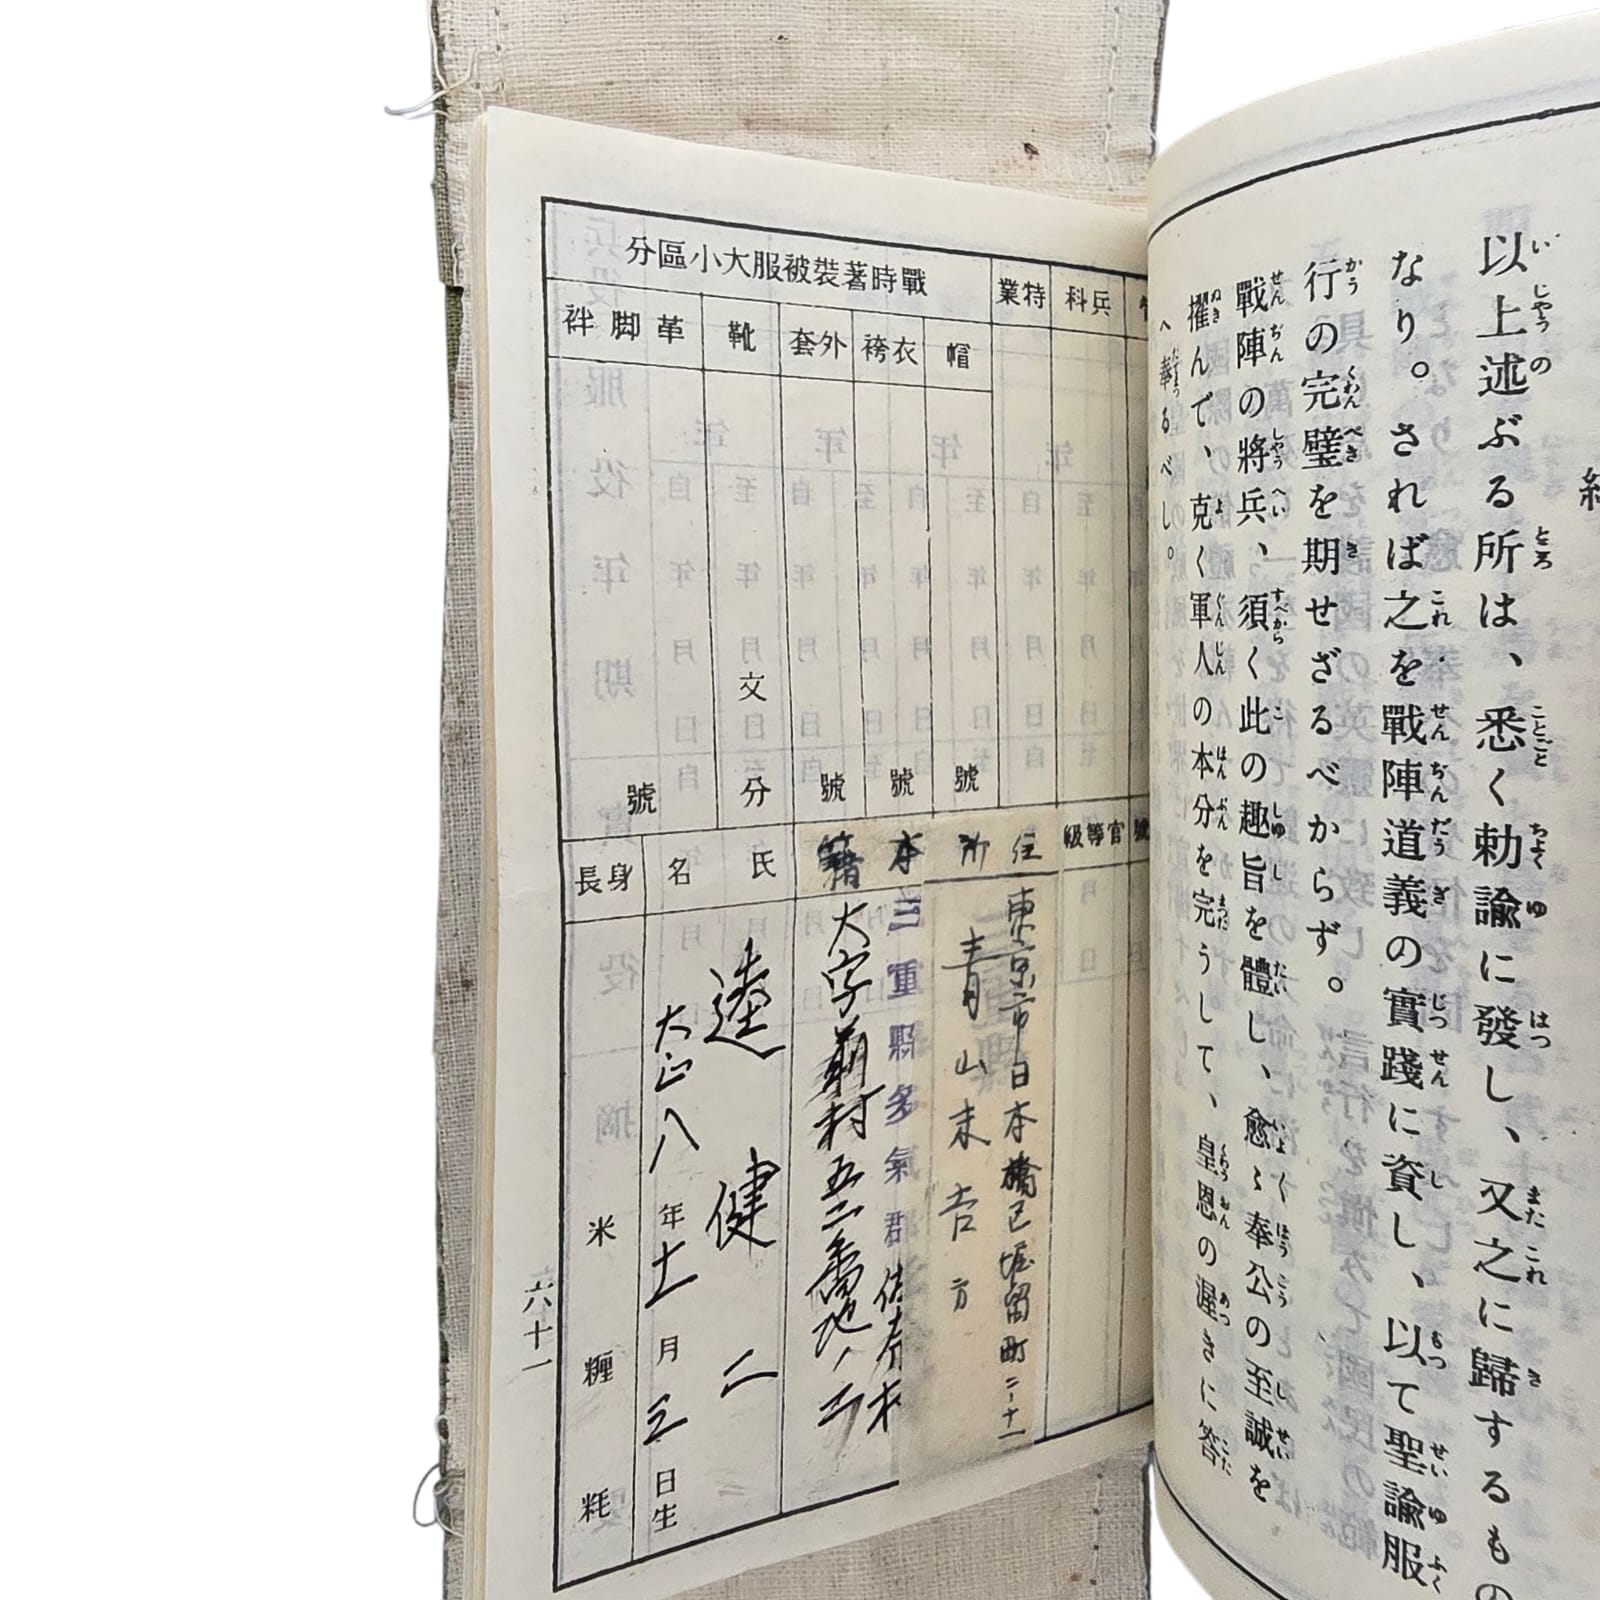 以上述ぶる所は、悉く勅諭に發し、又之に歸するもの
なり。されば之を戰陣道義の實踐に資し、以て聖諭服
行の完璧を期せざるべからず。
戰陣の將兵、須く此の趣旨を體し、愈〻奉公の至誠を
擢んで、克く軍人の本分を完うして、皇恩の渥きに答
へ奉るべし。
兵科
特業
官等級
戰時著裝被服大小區分
帽
號
衣袴
號
外套
號
靴
文
分
革脚絆
號
住所
東京市日本橋区堀留町二ノ十一
青山末吉方
本籍
三重縣多氣郡佐奈村
大字前村五二番地ノ二
氏名
逵健二
大正八年十一月三日生
身長
米
糎
粍
六十一